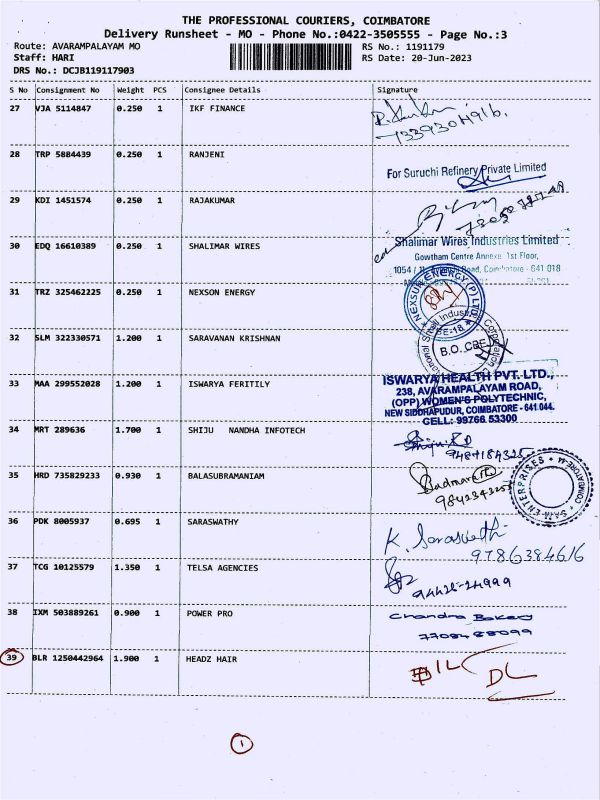 THE PROFESSIONAL COURIERS, COIMBATORE
Delivery Runsheet - MO - Phone No.:0422-3505555 - Page No.:3
Route: AVARAMPALAYAM MO RS No.: 1191179
Staff: HARI RS Date: 20-Jun-2023
DRS No.: DCJB119117903
S No Consignment No Weight PCS Consignee Details Signature
27 VJA 5114847 0.250 1 IKF FINANCE
28 TRP 5884439 0.250 1 RANJENI
For Suruchi Refinery Private Limited
29 KDI 1451574 0.250 1 RAJAKUMAR
30 EDQ 16610389 0.250 1 SHALIMAR WIRES Shalimar Wires Industries Limited
Gowtham Centre Annexe 1st Floor,
Road, Coimbatore - 641 018
31 TRZ 325462225 0.250 1 NEXSON ENERGY
NEXSUN ENERGY (P) LTD
32 SLM 322330571 1.200 1 SARAVANAN KRISHNAN
B.O. CBE
33 MAA 299552028 1.200 1 ISWARYA FERITILY
ISWARYA HEALTH PVT. LTD.,
238, AVARAMPALAYAM ROAD,
(OPP) WOMEN'S POLYTECHNIC,
NEW SIDDHAPUDUR, COIMBATORE - 641 044.
CELL: 99766 53300
34 MRT 289636 1.700 1 SHIJU NANDHA INFOTECH
35 HRD 735829233 0.930 1 BALASUBRAMANIAM
9842343255
SAM ENTERPRISES COIMBATORE-44
36 PDK 8005937 0.695 1 SARASWATHY K. Saraswathi
9786384616
37 TCG 10125579 1.350 1 TELSA AGENCIES
94425-24999
38 IXM 503889261 0.900 1 POWER PRO Chandra Bakery
7708488099
39 BLR 1250442964 1.900 1 HEADZ HAIR
DL
1